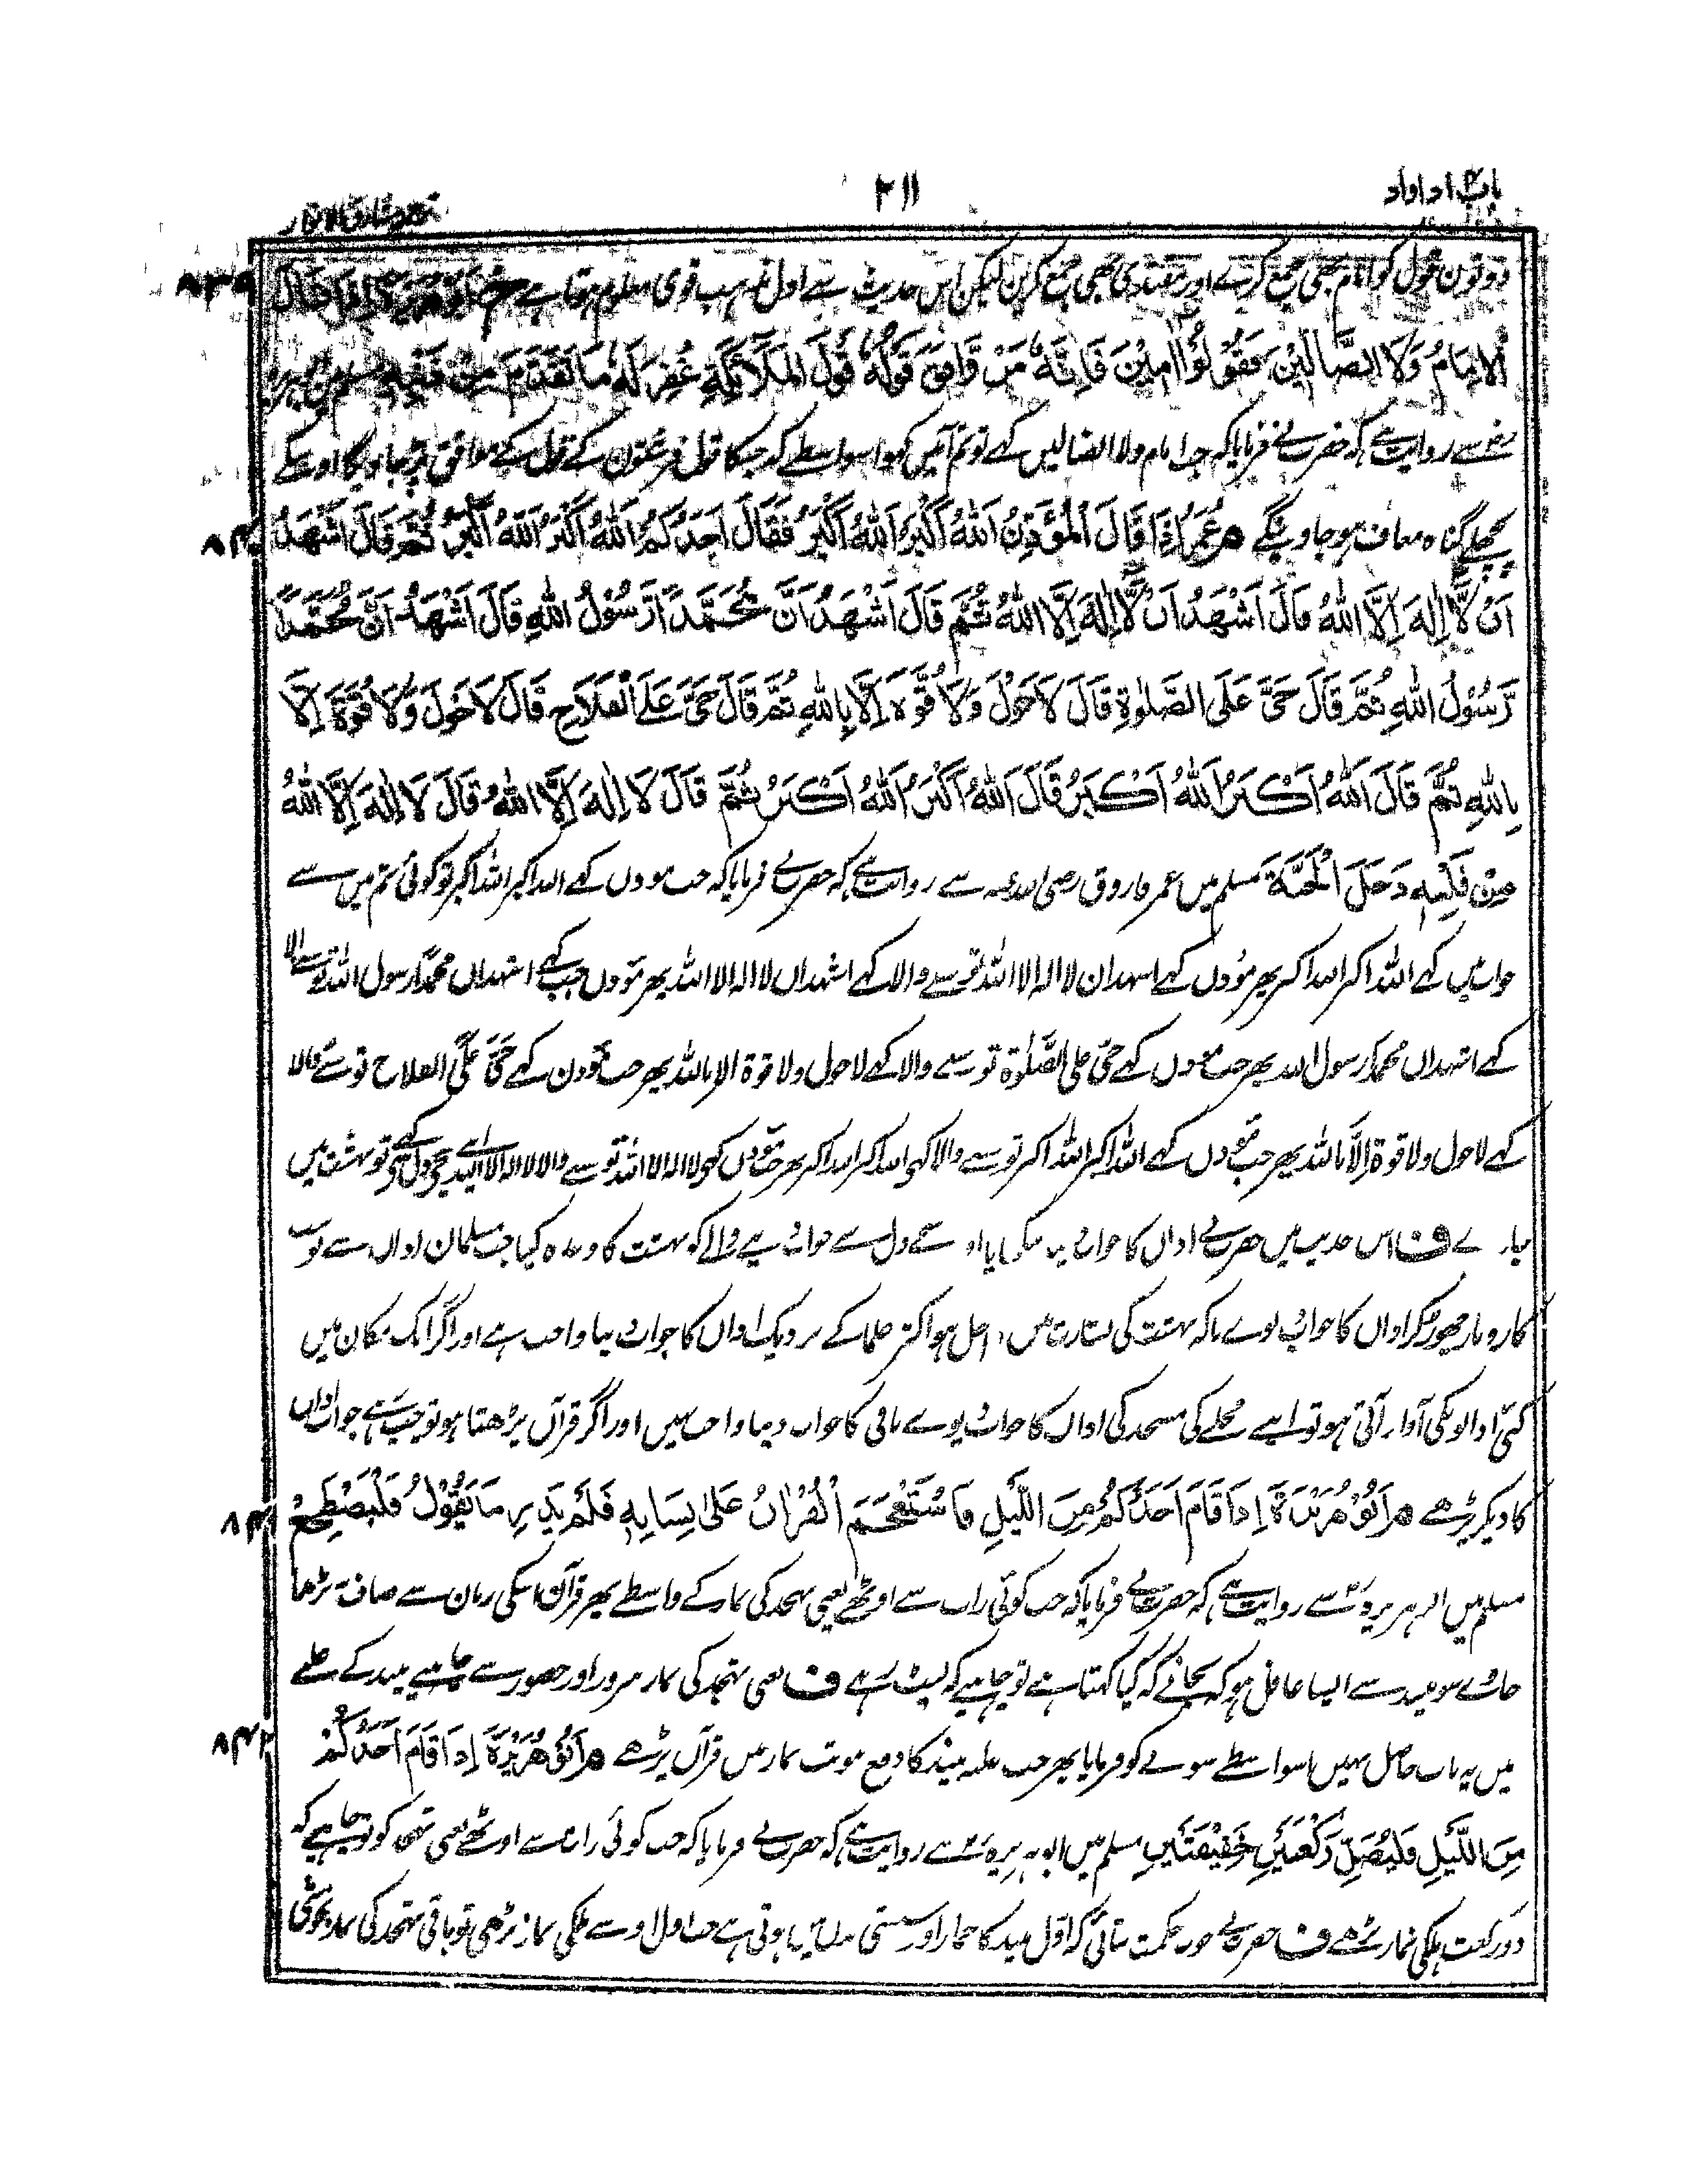 باب۴ اد اواد
۲۱۱
دونون قول کو امام بھی جمع کرے اور مقتدی بھی جمع کرین لیکن اس حدیث سے اول مذہب قوی معلوم ہوتا ہے قَالَ
۸۳۹
الْاِمَامُ وَلَا الضَّالِّیْنَ فَقُوْلُوْا اٰمِیْنَ فَاِنَّهٗ مَنْ وَّافَقَ قَوْلُهٗ قَوْلَ الْمَلَآئِكَةِ غُفِرَ لَهٗ مَا تَقَدَّمَ مِنْ
سے روایت ہے کہ حضرت نے فرمایا کہ جب امام ولا الضالین کہے تو تم آمین کہو اسواسطے کہ جسکا قول فرشتون کے قول کے موافق پڑجاویگا اوسکے
پچھلے گناہ معاف ہو جاوینگے م عُمَرُ اِذَا قَالَ الْمُؤَذِّنُ اَللهُ اَكْبَرُ اَللهُ اَكْبَرُ فَقَالَ اَحَدُكُمُ اَللهُ اَكْبَرُ اَللهُ اَكْبَرُ ثُمَّ قَالَ اَشْهَدُ
۸۴۰
اَنْ لَّا اِلٰهَ اِلَّا اللهُ قَالَ اَشْهَدُ اَنْ لَّا اِلٰهَ اِلَّا اللهُ ثُمَّ قَالَ اَشْهَدُ اَنَّ مُحَمَّدًا رَّسُوْلُ اللهِ قَالَ اَشْهَدُ اَنَّ مُحَمَّدًا
رَّسُوْلُ اللهِ ثُمَّ قَالَ حَیَّ عَلَی الصَّلٰوةِ قَالَ لَا حَوْلَ وَلَا قُوَّةَ اِلَّا بِاللهِ ثُمَّ قَالَ حَیَّ عَلَی الْفَلَاحِ قَالَ لَا حَوْلَ وَلَا قُوَّةَ اِلَّا
بِاللهِ ثُمَّ قَالَ اَللهُ اَكْبَرُ اَللهُ اَكْبَرُ قَالَ اَللهُ اَكْبَرُ اَللهُ اَكْبَرُ ثُمَّ قَالَ لَا اِلٰهَ اِلَّا اللهُ قَالَ لَا اِلٰهَ اِلَّا اللهُ
مِنْ قَلْبِهٖ دَخَلَ الْجَنَّةَ مسلم میں عمر فاروق رضی اللہ عنہ سے روایت ہے کہ حضرت نے فرمایا کہ جب موذن کہے اللہ اکبر اللہ اکبر تو کوئی تم میں سے
جواب میں کہے اللہ اکبر اللہ اکبر پھر مؤذن کہے اشہد ان لا الہ الا اللہ تو سننے والا کہے اشہد ان لا الہ الا اللہ پھر مؤذن جب کہے اشہد ان محمدًا رسول اللہ تو سننے والا
کہے اشہد ان محمدًا رسول اللہ پھر جب مؤذن کہے حیّ علی الصّلوٰة تو سننے والا کہے لا حول ولا قوة الا باللہ پھر جب مؤذن کہے حَیَّ عَلَی الفلاح تو سننے والا
کہے لا حول ولا قوة اِلّا باللہ پھر جب مؤذن کہے اللہ اکبر اللہ اکبر تو سننے والا کہی اللہ اکبر اللہ اکبر پھر جب مؤذن کہی لا الہ الا اللہ تو سننے والا لا الہ الا اللہ سچے دل سے کہے تو بہشت میں
ف اس حدیث میں حضرت نے اذان کا جواب دینا سکھایا اور سچے دل سے جواب دینے والے کو بہشت کا وعدہ کیا جب مسلمان اذان سنے تو سب
کاروبار چھوڑکر اذان کا جواب دیوے تاکہ بہشت کی بشارت میں داخل ہو اکثر علما کے نزدیک اذان کا جواب دینا واجب ہے اور اگر ایک مکان میں
کئی اذانونکی آواز آتی ہو تو اپنے محلے کی مسجد کی اذان کا جواب دیوے باقی کا جواب دینا واجب نہیں اور اگر قرآن پڑھتا ہو تو جب سنے جواب اذان
کا دیکر پڑھے م اَبُوْ هُرَیْرَةَ اِذَا قَامَ اَحَدُكُمْ مِنَ اللَّیْلِ فَاسْتَعْجَمَ الْقُرْاٰنُ عَلٰی لِسَانِهٖ فَلَمْ یَدْرِ مَا یَقُوْلُ فَلْیَضْطَجِعْ
۸۴۱
مسلم میں ابوہریرہؓ سے روایت ہے کہ حضرت نے فرمایا کہ جب کوئی رات سے اوٹھے یعنی تہجد کی نماز کے واسطے پھر قرآن اسکی زبان سے صاف نہ پڑھا
جاوے سو نیند سے ایسا غافل ہو کہ نجانے کہ کیا کہتا ہے تو چاہیے کہ لیٹ رہے ف یعنی تہجد کی نماز سرور اور حضور سے چاہیے نیند کے غلبے
میں یہ بات حاصل نہیں اسواسطے سونے کو فرمایا پھر جب غلبہ نیند کا دفع ہو تب نماز میں قرآن پڑھے م اَبُوْ هُرَیْرَةَ اِذَا قَامَ اَحَدُكُمْ
۸۴۲
مِنَ اللَّیْلِ فَلْیُصَلِّ رَكْعَتَیْنِ خَفِیْفَتَیْنِ مسلم میں ابوہریرہؓ سے روایت ہے کہ حضرت نے فرمایا کہ جب کوئی رات سے اوٹھے یعنی تہجد کو تو چاہیے کہ
دو رکعت ہلکی نماز پڑھے ف حضرت نے خود حکمت بتائی کہ اوّل نیند کا خمار اور سستی بدن میں ہوتی ہے جب اول اوسنے ہلکی نماز پڑھی تو باقی تہجد کی نماز بخوشی